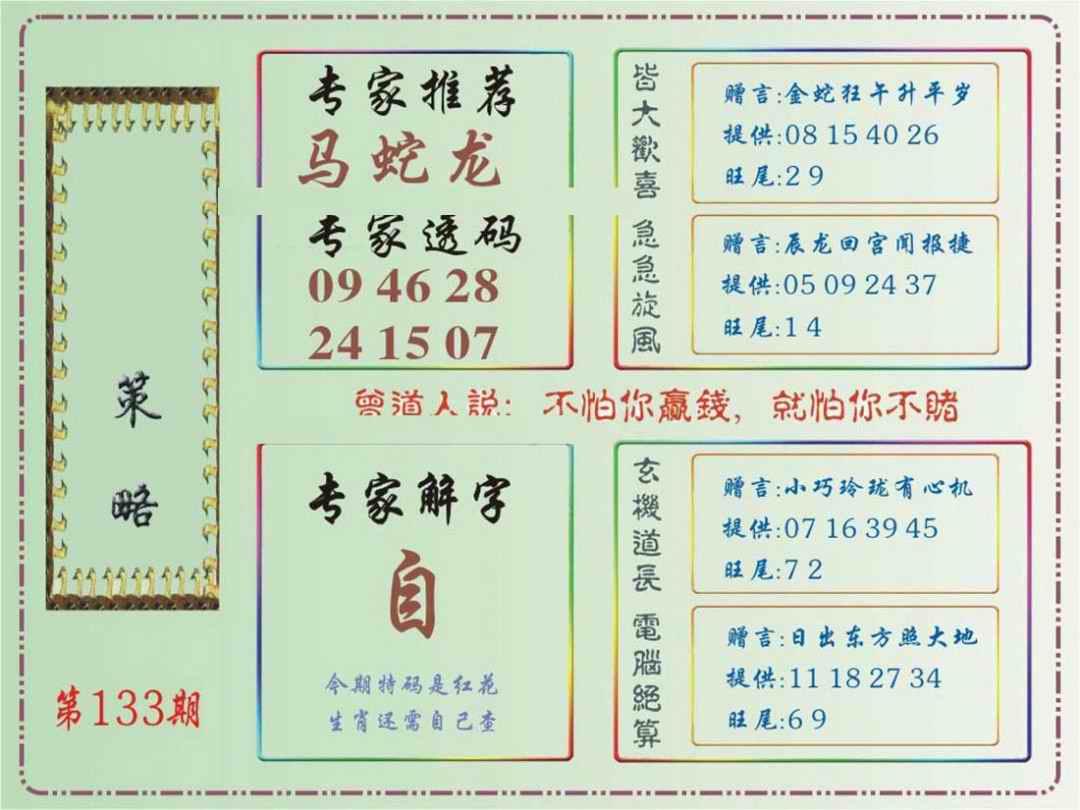 策略
第133期
专家推荐
马蛇龙
专家透码
09 46 28
24 15 07
皆大歡喜
赠言:金蛇狂午升平岁
提供:08 15 40 26
旺尾:2 9
急急旋風
赠言:辰龙回宫闻报捷
提供:05 09 24 37
旺尾:1 4
曾道人説: 不怕你贏錢, 就怕你不賭
专家解字
自
今期特码是红花
生肖还需自己查
玄機道長
赠言:小巧玲珑有心机
提供:07 16 39 45
旺尾:7 2
電腦絕算
赠言:日出东方照大地
提供:11 18 27 34
旺尾:6 9